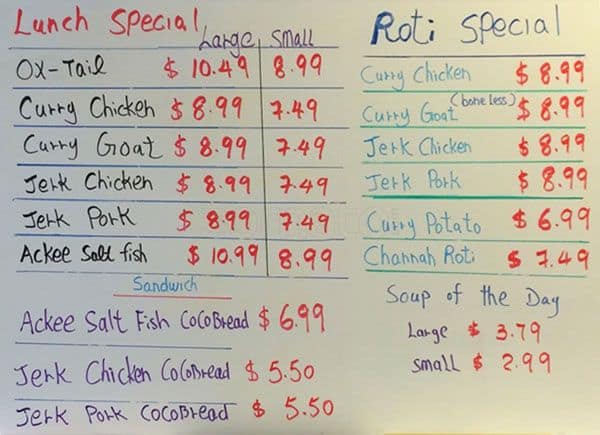 Lunch Special
Large Small
Ox-Tail $ 10.49 8.99
Curry Chicken $ 8.99 7.49
Curry Goat $ 8.99 7.49
Jerk Chicken $ 8.99 7.49
Jerk Pork $ 8.99 7.49
Ackee Salt fish $ 10.99 8.99
Sandwich
Ackee Salt Fish CocoBread $ 6.99
Jerk Chicken CocoBread $ 5.50
Jerk Pork CocoBread $ 5.50
Roti Special
Curry Chicken $ 8.99
Curry Goat (boneless) $ 8.99
Jerk Chicken $ 8.99
Jerk Pork $ 8.99
Curry Potato $ 6.99
Channah Roti $ 7.49
Soup of the Day
Large $ 3.79
Small $ 2.99